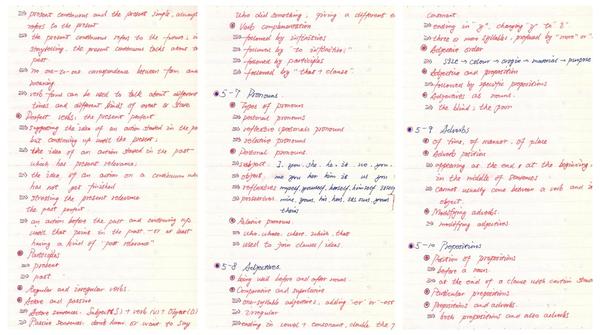 present continuous and the present simple, always
refers to the present
the present continuous refers to the future; in
storytelling, the present continuous talks about a
past
no one-to-one correspondence between form and
meaning.
verb forms can be used to talk about different
times and different kinds of event or state
Perfect verbs: the present perfect
supporting the idea of an action started in the pa
but continuing up until the present;
the idea of an action started in the past
which has present relevance;
the idea of an action on a continuum wh
has not yet finished
stressing the present relevance
the past perfect
an action before the past and continuing up
until that point in the past - or at least
having a kind of "past relevance"
Participles
present
past
Regular and irregular verbs.
Active and passive
Active sentences: Subject(S) + verb (v) + Object(O)
Passive sentences: don't know or want to say
who did something, giving a different e
Verb complementation
followed by infinitives
followed by "to infinitives;"
followed by participles
followed by "that + clause".
5-7 Pronouns.
Types of pronouns
personal pronouns
reflexive (personal) pronouns
relative pronouns
Personal pronouns
subject. I. you. she. he. it. we. you.
object. me you her him it us you
reflexives myself, yourself, herself, himself
possessives. mine, yours, his, hers, its, ours, yours
theirs
Relative pronouns
who. whose. where. which. that
used to join clauses / ideas.
5-8 Adjectives
being used before and after nouns.
Comparative and superlative
one-syllable adjectives, adding -er or -est
irregular
ending in vowel + consonant, double the
consonant
ending in "y", changing "y" to "i"
three or more syllables, prefixed by "more" or "
Adjective order
size → colour → origin → material → purpose
Adjective and preposition
followed by specific prepositions
Adjectives as nouns.
the blind; the poor
5-9 Adverbs
of time, of manner, of place
Adverb position
appearing at the end, at the beginning,
in the middle of sentences
cannot usually come between a verb and i
object.
Modifying adverbs.
modifying adjectives
5-10 Prepositions
Position of prepositions
before a noun
at the end of a clause with certain
Particular prepositions
Prepositions and adverbs
both prepositions and also adverbs